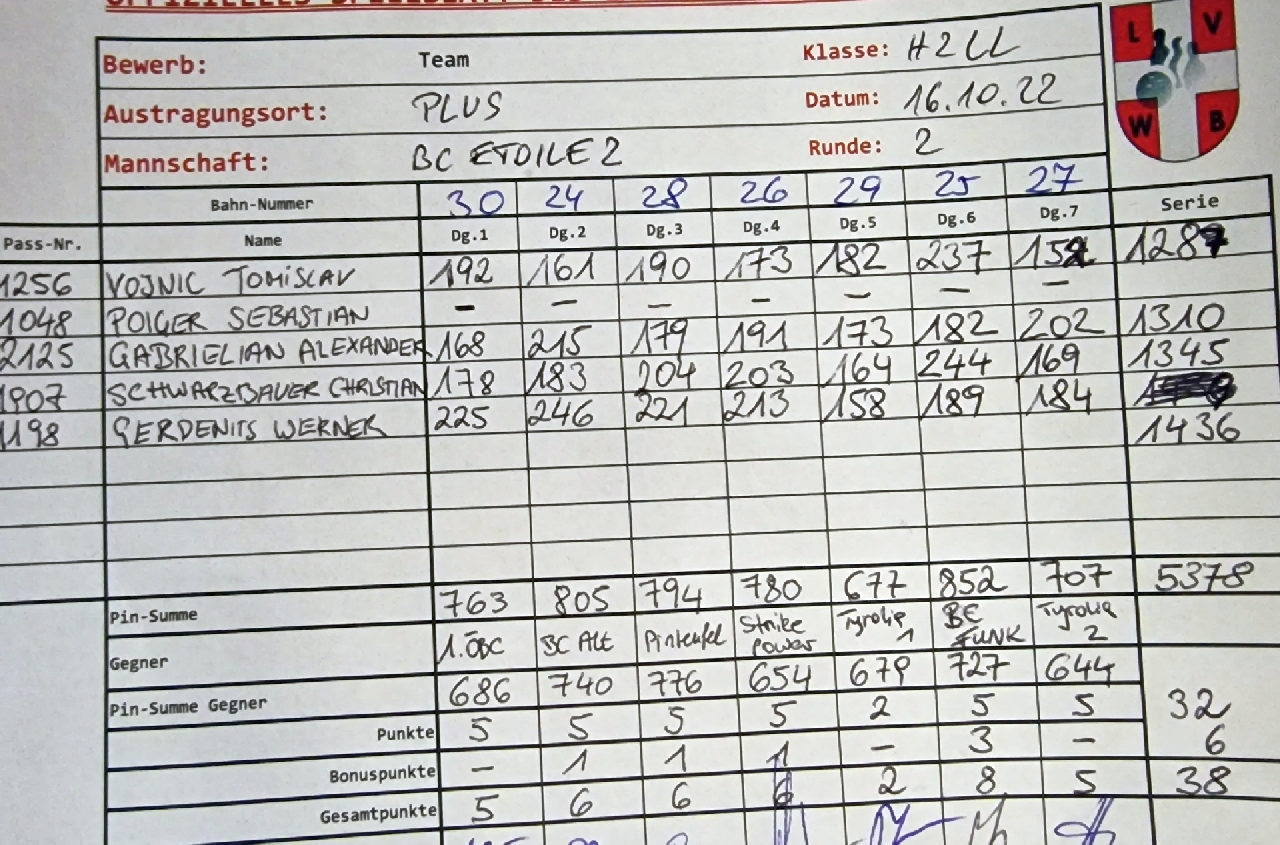 L V
W B
Bewerb: Team Klasse: H2LL
Austragungsort: PLUS Datum: 16.10.22
Mannschaft: BC ETOILE 2 Runde: 2
Bahn-Nummer 30 24 28 26 29 25 27 Serie
Pass-Nr. Name Dg.1 Dg.2 Dg.3 Dg.4 Dg.5 Dg.6 Dg.7
1256 VOJNIC TOMISLAV 192 161 190 173 182 237 152 1287
1048 POIGER SEBASTIAN - - - - - - -
2125 GABRIELIAN ALEXANDER 168 215 179 191 173 182 202 1310
1907 SCHWARZBAUER CHRISTIAN 178 183 204 203 164 244 169 1345
1198 GERDENITS WERNER 225 246 221 213 158 189 184 1436
Pin-Summe 763 805 794 780 677 852 707 5378
Gegner 1.ÖBC BC Alt Pinteufel Strike Power Tyrolia 1 BC FUNK Tyrolia 2
Pin-Summe Gegner 686 740 776 654 679 727 644
Punkte 5 5 5 5 2 5 5 32
Bonuspunkte - 1 1 1 - 3 - 6
Gesamtpunkte 5 6 6 6 2 8 5 38